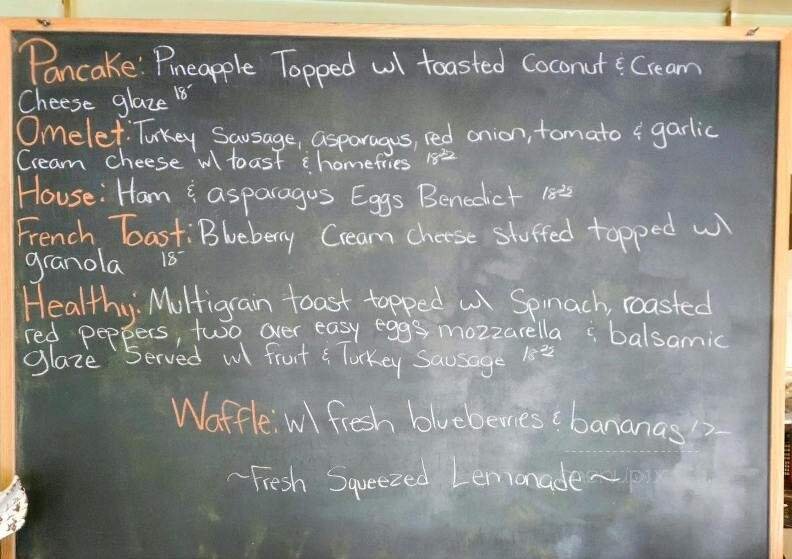 Pancake: Pineapple Topped w/ toasted Coconut & Cream
Cheese glaze 18-
Omelet: Turkey Sausage, asparagus, red onion, tomato & garlic
Cream cheese w/ toast & homefries
House: Ham & asparagus Eggs Benedict 18 25
French Toast: Blueberry Cream Cheese stuffed topped w/
granola 18-
Healthy: Multigrain toast topped w/ Spinach, roasted
red peppers, two over easy eggs, mozzarella & balsamic
glaze Served w/ fruit & Turkey Sausage
Waffle: w/ fresh blueberries & bananas 17-
~Fresh Squeezed Lemonade~